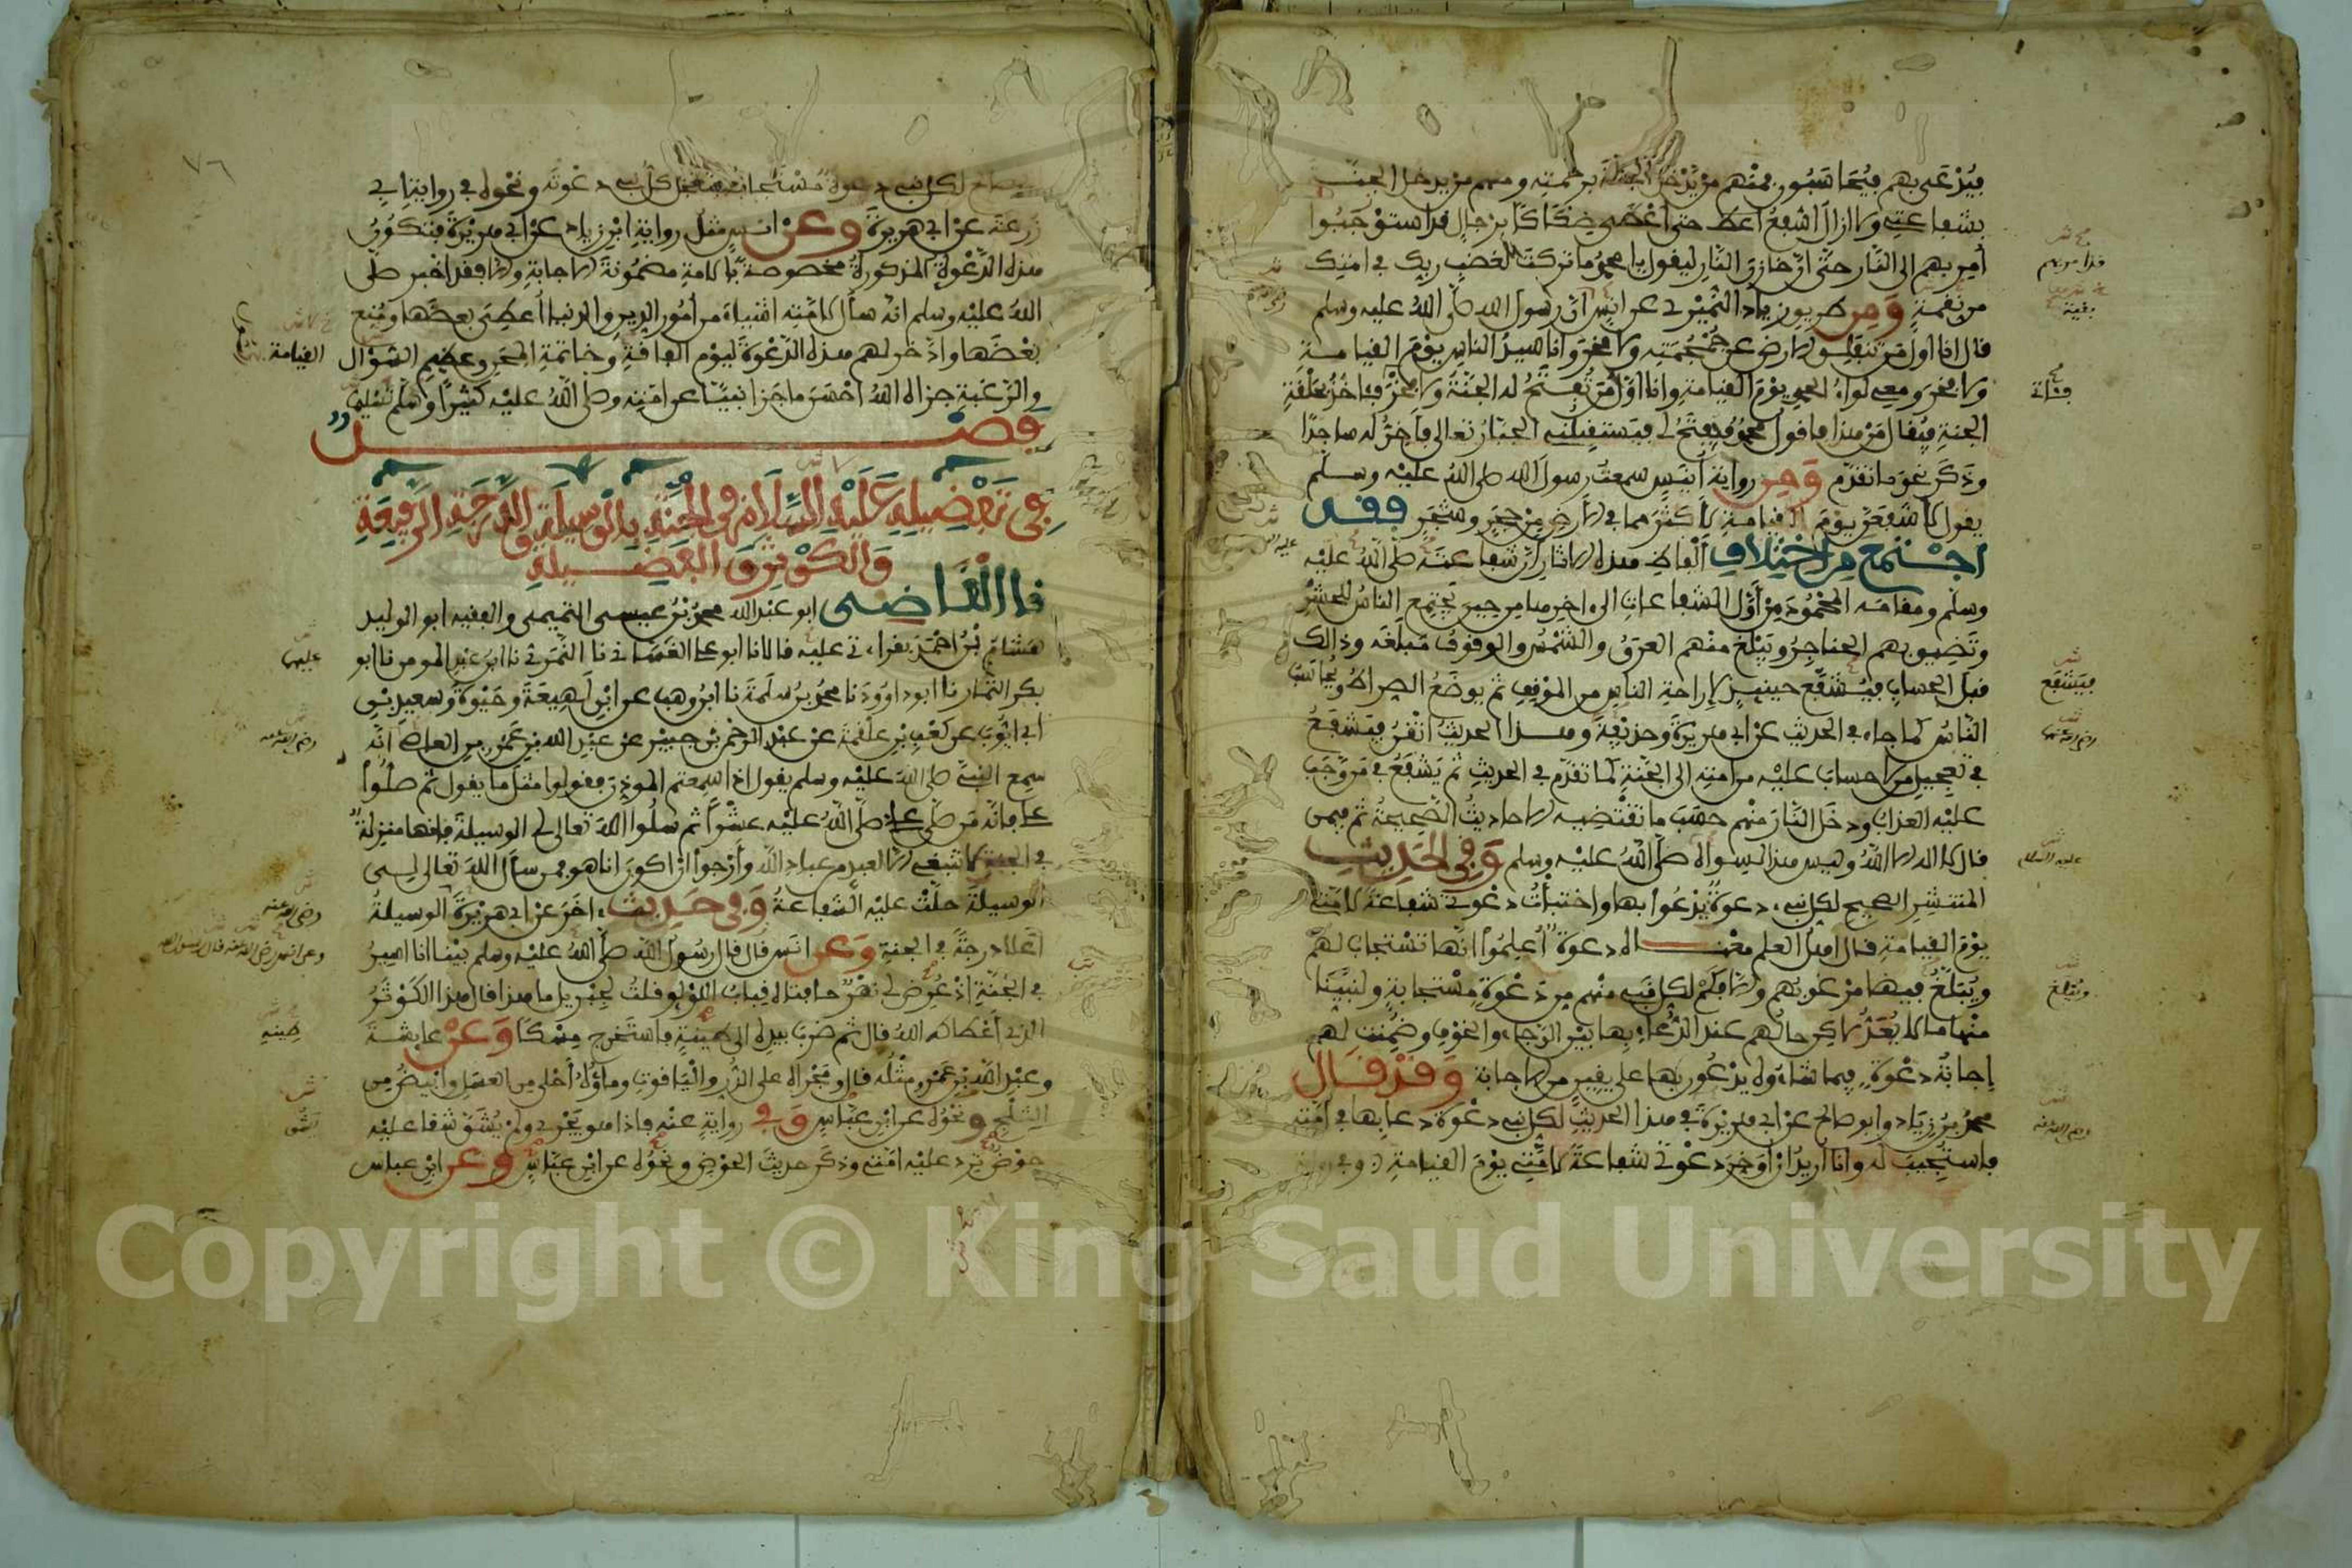 فيدعى بهم فيحاسبون فمنهم من يدخل الجنة برحمته ومنهم من يدخل الجنة
بشفاعتي ولا ازال اشفع حتى اعطى صكاكا برجال قد استوجبوا
أمر بهم الى النار حتى ان خازن النار ليقول يا محمد ما تركت لغضب ربك في امتك
من نقمة ومن طريق زياد النميري عن انس ان رسول الله صلى الله عليه وسلم
قال انا اول من تنفلق الارض عن جمجمته ولا فخر وانا سيد الناس يوم القيامة
ولا فخر ومعي لواء الحمد يوم القيامة وانا اول من تفتح له الجنة ولا فخر فآخذ بحلقة
الجنة فيقال من هذا فاقول محمد فيفتح لي فيستقبلني الجبار تعالى فأخر له ساجدا
وذكر نحو ما تقدم ومن رواية أنيس سمعت رسول الله صلى الله عليه وسلم
يقول لأشفعن يوم القيامة لأكثر مما في الأرض من حجر وشجر فقد
اجتمع من اختلاف ألفاظ هذه الاثار ان شفاعته صلى الله عليه
وسلم ومقامه المحمود من أول الشفاعات الى اخرها من حين يجتمع الناس للحشر
وتضيق بهم الحناجر ويبلغ منهم العرق والشمس والوقوف مبلغه وذالك
قبل الحساب فيشفع حينئذ لإراحة الناس من الموقف ثم يوضع الصراط ويحاسب
الناس كما جاء في الحديث عن ابي هريرة وحذيفة وهذا الحديث اتقن فيشفع
في تعجيل من لا حساب عليه من امته الى الجنة كما تقدم في الحديث ثم يشفع في من وجب
عليه العذاب ودخل النار منهم حسب ما تقتضيه الاحاديث الصحيحة ثم فيمن
قال لا اله الا الله وليس هذا لسواه صلى الله عليه وسلم وفي الحديث
المنتشر الصحيح لكل نبي دعوة يدعوا بها واختبأت دعوتي شفاعة لامتي
يوم القيامة قال اهل العلم معناه دعوة أعلموا انها تستجاب لهم
ويبلغ فيها مرغوبهم والا فكم لكل نبي منهم من دعوة مستجابة ولنبينا
منها ما لا يعد لاكن حالهم عند الدعاء بها بين الرجاء والخوف وضمنت لهم
إجابة دعوة فيما شاءوه يدعون بها على يقين من الاجابة وقد قال
محمد بن زياد وابو صالح عن ابي هريرة في هذا الحديث لكل نبي دعوة دعا بها في امته
فاستجيب له وانا اريد ان أوخر دعوتي شفاعة لامتي يوم القيامة وفي رواية
فقد امر بهم
بقية
فيشفع
رضي الله عنهما
عليه السلام
وتبلغ
رضي الله عنه
٧٦
صالح لكل نبي دعوة مستجابة فتعجل كل نبي دعوته ونحوه في رواية ابي
زرعة عن ابي هريرة وعن انس مثل رواية ابن زياد عن ابي هريرة فتكون
هذه الدعوة المذكورة مخصوصة بالامة مضمونة الاجابة والا فقد اخبر صلى
الله عليه وسلم انه سأل لامته اشياء من أمور الدين والدنيا أعطي بعضها ومنع
بعضها وادخر لهم هذه الدعوة ليوم الفاقة وخاتمة المحن وعظيم السؤال
والرغبة جزاه الله احسن ما جزا نبيا عن امته وصلى الله عليه كثيرا وسلم تسليما
فصل
في تفضيله عليه السلام في الجنة بالوسيلة والدرجة الرفيعة
والكوثر والفضيلة
قال القاضي ابو عبد الله محمد بن عيسى التميمي والفقيه ابو الوليد
هشام بن احمد بقراءتي عليه قالا نا ابو علي الغساني نا النمري نا ابن عبد المومن نا ابو
بكر التمار نا ابو داوود نا محمد بن سلمة نا ابن وهب عن ابن لهيعة وحيوة وسعيد بن
ابي ايوب عن كعب بن علقمة عن عبد الرحمن بن جبير عن عبد الله بن عمرو بن العاص انه
سمع النبي صلى الله عليه وسلم يقول اذا سمعتم الموذن فقولوا مثل ما يقول ثم صلوا
علي فانه من صلى علي صلى الله عليه عشرا ثم سلوا الله تعالى لي الوسيلة فإنها منزلة
في الجنة لا تنبغي الا لعبد من عباد الله وأرجوا ان اكون انا هو فمن سأل الله تعالى لي
الوسيلة حلت عليه الشفاعة وفي حديث اخر عن ابي هريرة الوسيلة
أعلا درجة في الجنة وعن انس قال قال رسول الله صلى الله عليه وسلم بينا انا اسير
في الجنة اذ عرض لي نهر حافتاه قباب اللؤلؤ قلت لجبريل ما هذا قال هذا الكوثر
الذي أعطاكه الله قال ثم ضرب بيده الى طينة فاستخرج مسكا وعن عايشة
وعبد الله بن عمرو مثله قال ومجراه على الدر والياقوت وماؤه أحلى من العسل وابيض من
الثلج ونحوه عن ابن عباس وفي رواية عنه فاذا هو يجري ولم يشق شقا عليه
حوض ترد عليه امتي وذكر حديث الحوض ونحوه عن ابن عباس وعن ابن عباس
القيامة
عليهما
رضي الله عنه
رضي الله عنه
وعن انس رضي الله عنه قال رسول الله
طينه
Copyright © King Saud University